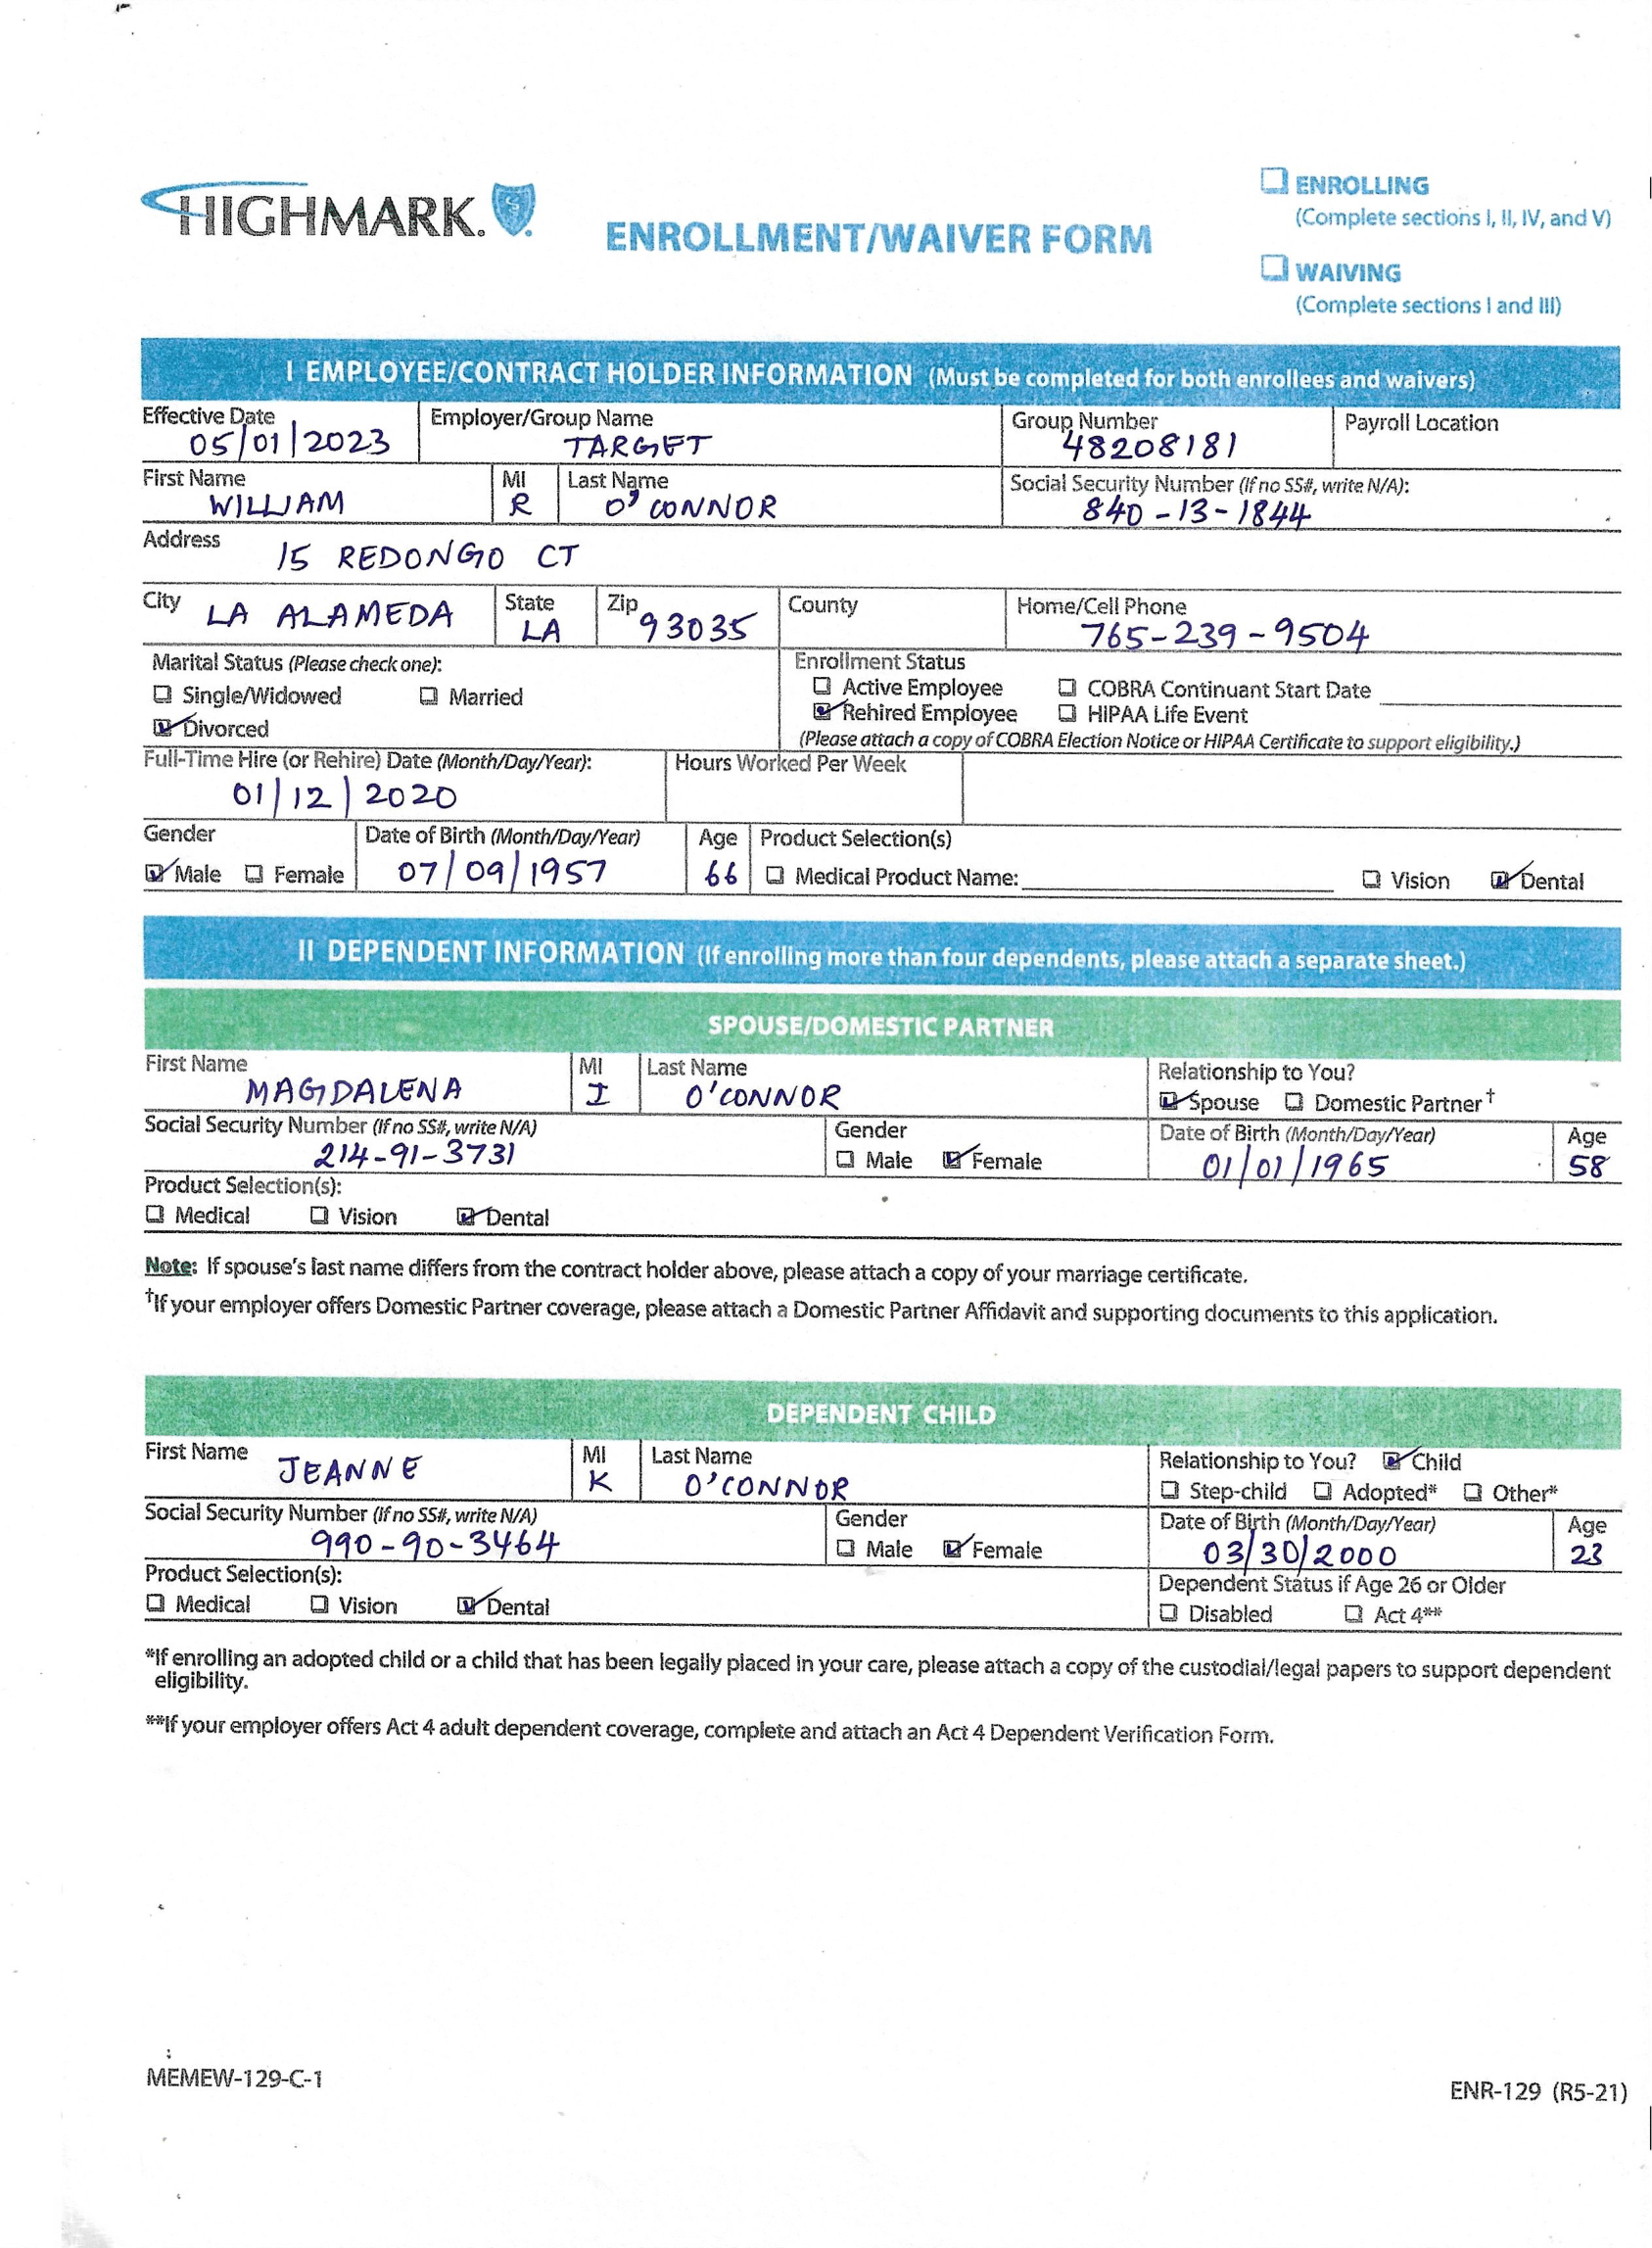 HIGHMARK.
ENROLLMENT/WAIVER FORM
ENROLLING
(Complete sections I, II, IV, and V)
WAIVING
(Complete sections I and III)
I EMPLOYEE/CONTRACT HOLDER INFORMATION (Must be completed for both enrollees and waivers)
Effective Date Employer/Group Name Group Number Payroll Location
05/01/2023 TARGET 48208181
First Name MI Last Name Social Security Number (If no SS#, write N/A):
WILLIAM R O'CONNOR 840-13-1844
Address 15 REDONGO CT
City LA ALAMEDA State LA Zip 93035 County Home/Cell Phone 765-239-9504
Marital Status (Please check one): Enrollment Status
Single/Widowed Married Active Employee COBRA Continuant Start Date
Divorced Rehired Employee HIPAA Life Event
(Please attach a copy of COBRA Election Notice or HIPAA Certificate to support eligibility.)
Full-Time Hire (or Rehire) Date (Month/Day/Year): Hours Worked Per Week
01/12/2020
Gender Date of Birth (Month/Day/Year) Age Product Selection(s)
Male Female 07/09/1957 66 Medical Product Name: Vision Dental
II DEPENDENT INFORMATION (If enrolling more than four dependents, please attach a separate sheet.)
SPOUSE/DOMESTIC PARTNER
First Name MI Last Name Relationship to You?
MAGDALENA I O'CONNOR Spouse Domestic Partner†
Social Security Number (If no SS#, write N/A) Gender Date of Birth (Month/Day/Year) Age
214-91-3731 Male Female 01/01/1965 58
Product Selection(s):
Medical Vision Dental
Note: If spouse's last name differs from the contract holder above, please attach a copy of your marriage certificate.
†If your employer offers Domestic Partner coverage, please attach a Domestic Partner Affidavit and supporting documents to this application.
DEPENDENT CHILD
First Name MI Last Name Relationship to You? Child
JEANNE K O'CONNOR Step-child Adopted* Other*
Social Security Number (If no SS#, write N/A) Gender Date of Birth (Month/Day/Year) Age
990-90-3464 Male Female 03/30/2000 23
Product Selection(s): Dependent Status if Age 26 or Older
Medical Vision Dental Disabled Act 4**
*If enrolling an adopted child or a child that has been legally placed in your care, please attach a copy of the custodial/legal papers to support dependent
eligibility.
**If your employer offers Act 4 adult dependent coverage, complete and attach an Act 4 Dependent Verification Form.
MEMEW-129-C-1
ENR-129 (R5-21)